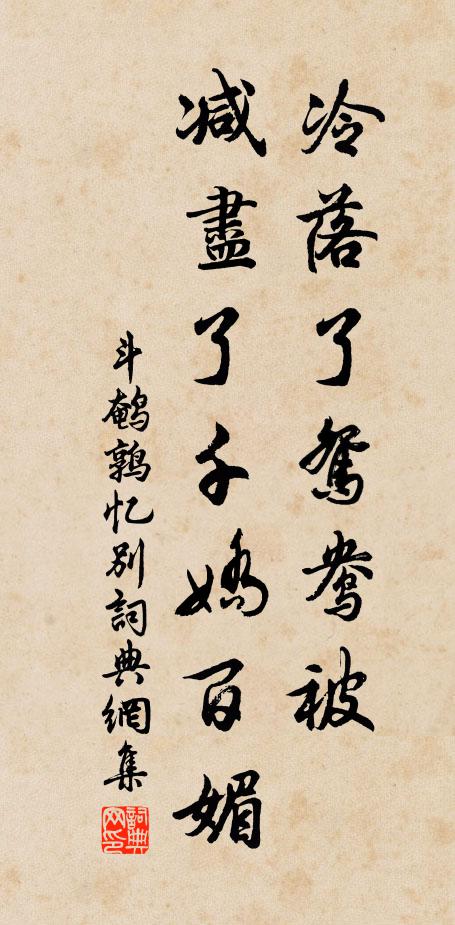 冷落了鴛鴦被
减盡了千嬌百媚
斗鹌鹑忆别詞典網集
詞典网印